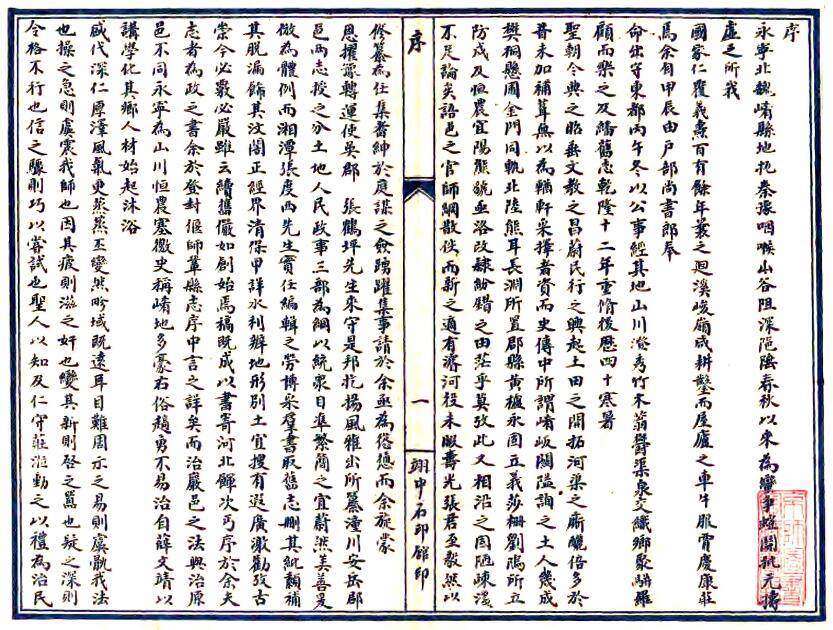 序
永寧北魏崤縣地扼秦豫咽喉山谷阻深陁隂春秋以來為戰爭蜂鬭抵亢擣
虛之所我
國家仁覆義幬百有餘年叢之迴溪峻嶺咸耕鑿而屋廬之車牛服賈慶康莊
焉余自甲辰由户部尚書郎奉
命出守東都丙午冬以公事經其地山川澄秀竹木蓊鬱渠泉交織鄉聚駢羅
顧而樂之及繙舊志乾隆十二年重脩後歷四十寒暑
聖朝令典之昭垂文教之昌蔚民行之興起土田之開拓河渠之廝釃倍多於
昔未加補葺無以為輶軒采擇者資而史傳中所謂崤岅關隘詢之土人幾成
樊桐懸圃金門同軌北陸熊耳長淵所置郡縣黃櫨永固立義莎柵劉隝所立
防戍及恒農宜陽熊虢亟洛改隸紛錯之由茫乎莫攷此又相沿之固陋疎漫
不足論矣語邑之官師綢散佚而新之適有濬河役未暇壽光張君至毅然以
脩纂為任集耆紳於庭謀之僉踴躍集事請於余亟為慫慂而余旋蒙
恩擢豫轉運使吳郡 張鶴坪先生來守是邦扢揚風雅出所纂潼川安岳郡
邑兩志授之分土地人民政事三部為綱以統衆目準繁簡之宜蔚然美善爰
倣為體例而湘潭張度西先生實任編輯之勞博采羣書取舊志刪其紕纇補
其脱漏飾其汶闇正經界清保甲詳水利辦地形别土宜搜有遐廣激勸攷古
崇今必覈必嚴雖云續舊儼如創始焉稿既成以書寄河北鐸次丐序於余夫
志者為政之書余於登封偃師鞏縣志序中言之詳矣而治嚴邑之法與治原
邑不同永寧為山川恒農塞徼史稱崤地多豪右俗趫勇不易治自薛文靖以
講學化其鄉人材始起沐浴
盛代深仁厚澤風氣更蒸蒸丕變然畛域既遠耳目難周示之易則虞翫我法
也操之急則虞寋我師也因其疲則滋之奸也變其新則啓之囂也疑之深則
令格不行也信之驟則巧以嘗試也聖人以知及仁守莊涖動之以禮為治民
序
一
翊中石印館印